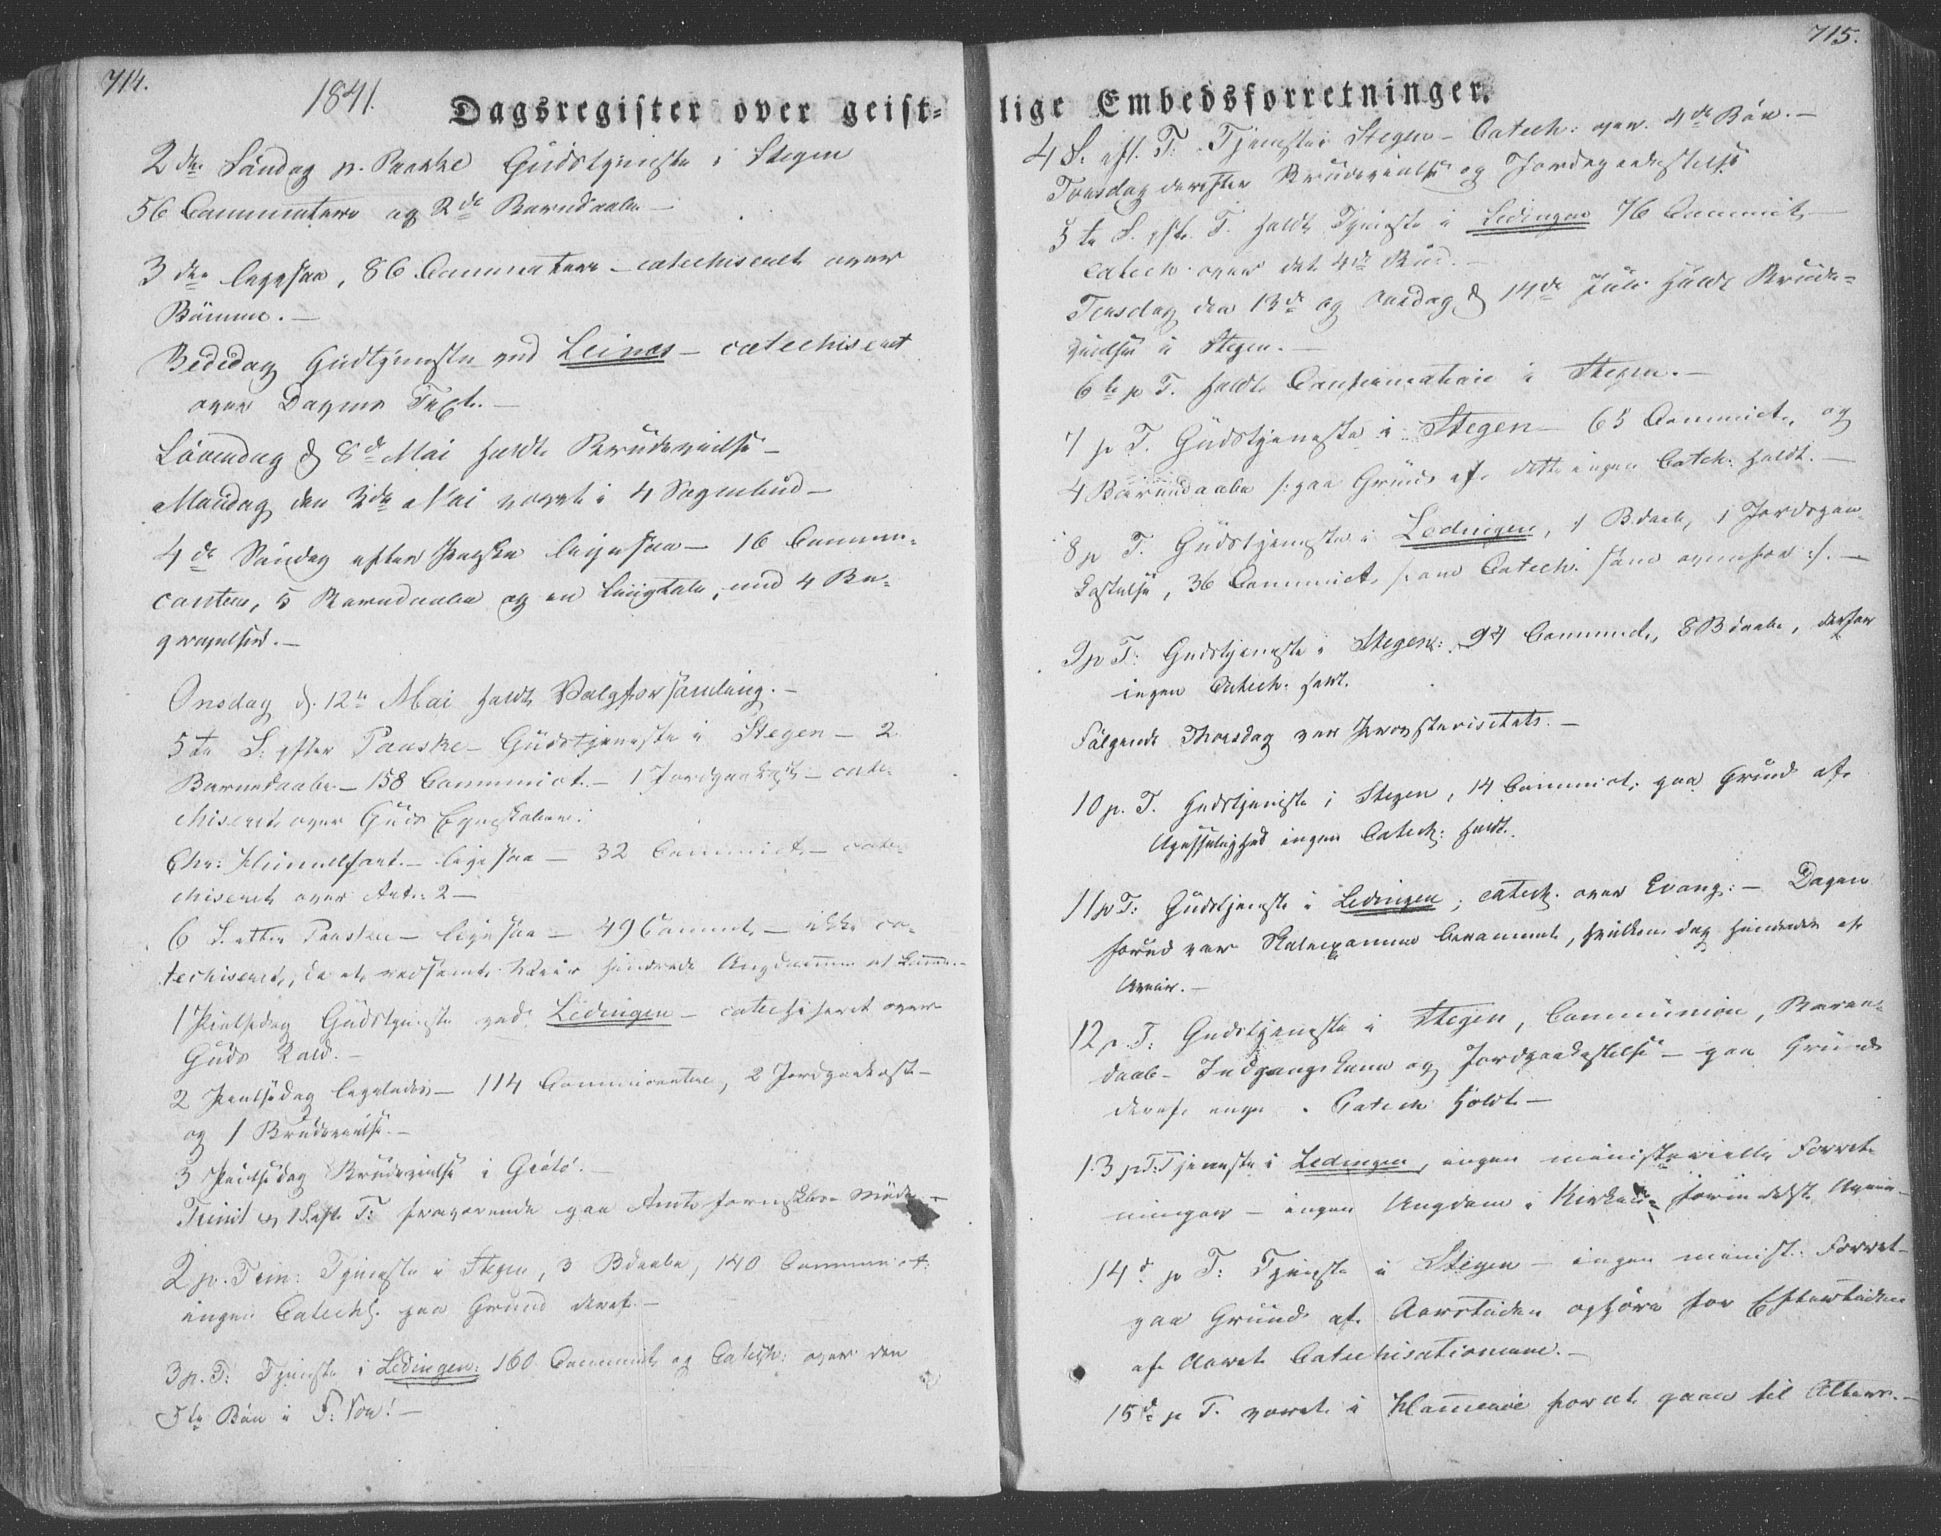 714.
1841.
Dagsregister over geist-
2den Søndag p. Paaske Gudstjeneste i Stegen
56 Communicanter og 2de Barnedaabe.—
3die ligesaa, 86 Communicanter – catechiseret over
Bønnen.—
Bededag Gudstjeneste ved Leines – catechiseret
over Dagens Text.—
Løverdag d. 8de Mai holdt Brudevielse –
Mandag den 3die Mai været i 4 Sognebud –
4de Søndag efter Paaske ligesaa – 16 Commu-
canter, 5 Barnedaabe og en Liigtale, med 4 Be-
gravelser.—
Onsdag d. 12te Mai holdt Valgforsamling.—
5te S: efter Paaske – Gudstjeneste i Stegen – 2
Barnedaabe – 158 Communict.– 1 Jordpaakast – cate-
chiseret over Guds Egenskaber.
Chr: Himmelfart.– ligesaa – 32 Communict.– cate-
chiseret over Art: 2 –
6 S. efter Paasken – ligesaa – 49 Commut. – ikke ca-
techiseret, da et Veir hindrede Ungdommen at komme.–
1 Pintsedag Gudstjeneste ved Lødingen – catechiseret over
Guds Kald.–
2 Pintsedag ligeledes – 114 Communicantere, 2 Jordpaakast –
og 1 Brudevielse.–
3 Pintsedag Brudevielse i
Trinit og 1 S. eft. T: fraværende paa Amts Formskabs Møde –
2 p. Trin: Tjeneste i Stegen, 3 Bdaabe, 140 Communict:
ingen Catechs. paa Grund deraf.–
3 p. T: Tjeneste i Lødingen: 160 Communict og Catech: over den
5te Bøn i F: Vor!–
715.
lige Embedsforretninger.
4 S. eft. T: Tjeneste i Stegen – Catech: over 4de Bøn.–
Torsdag derefter Brudevielse og Jordpaakastelse
5te S. eft. T. holdt Tjeneste i Lødingen 76 Communict –
catech. over det 4de Bud.–
Tirsdag den 13de og Onsdag d 14de Juli holdt Brude-
vielser i Stegen.–
6te p T. holdt Confirmation i Stegen.–
7 p T. Gudstjeneste i Stegen – 65 Communict, og
4 Barnedaabe /: paa Grund af dette ingen Catech: holdt.–
8 p T. Gudstjeneste i Lødingen, 1 Bdaab, 1 Jordspaa-
kastelse, 36 Communict, /: om Catech: som ovenfor :/.–
9 p T: Gudstjeneste i Stegen: 94 Communict, 8 Bdaabe, derfor
ingen Catech: holdt.
Følgende Thorsdag var Provstevisitats.–
10 p. T. Gudstjeneste i Stegen, 14 Communict: paa Grund af
Upasselighed ingen Catech: holdt.
11 p T: Gudstjeneste i Lødingen; catech. over Evang:– Dagen
forud var Skoleexamen berammet, hvilken dog hindredes af
Uveir.–
12 p. T: Gudstjeneste i Stegen, Communion, Barne-
daab – Indgangskone og Jordpaakastelse – paa Grund
deraf ingen Catech holdt –
13 p T: Tjeneste i Lødingen, ingen ministerielle Forret-
ninger – ingen Ungdom i Kirken
14de p T: Tjeneste i Stegen – ingen minist: Forret –
paa Grund af Aarstiden ophøre for Eftertiden
af Aaret Catechisationerne.–
15de p T. været i Hammerø for at gaae til Alters.–